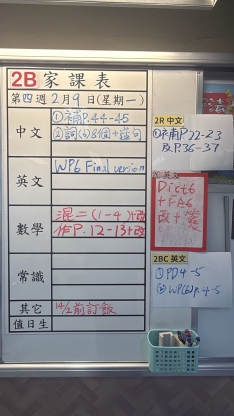 2B 家課表
第四週 2月9日(星期一)
中文
①補P.44-45
②詞(6)8個+造句
英文
WP6 Final version
數學
混二(1-4)+改
作P.12-13+改
常識
其它
14/2前訂飯
值日生
2R 中文
①補P.22-23
及P.36-37
英文
Dict6
+FA6
改+簽
2BC 英文
①PD4-5
②WP(6)p.4-5